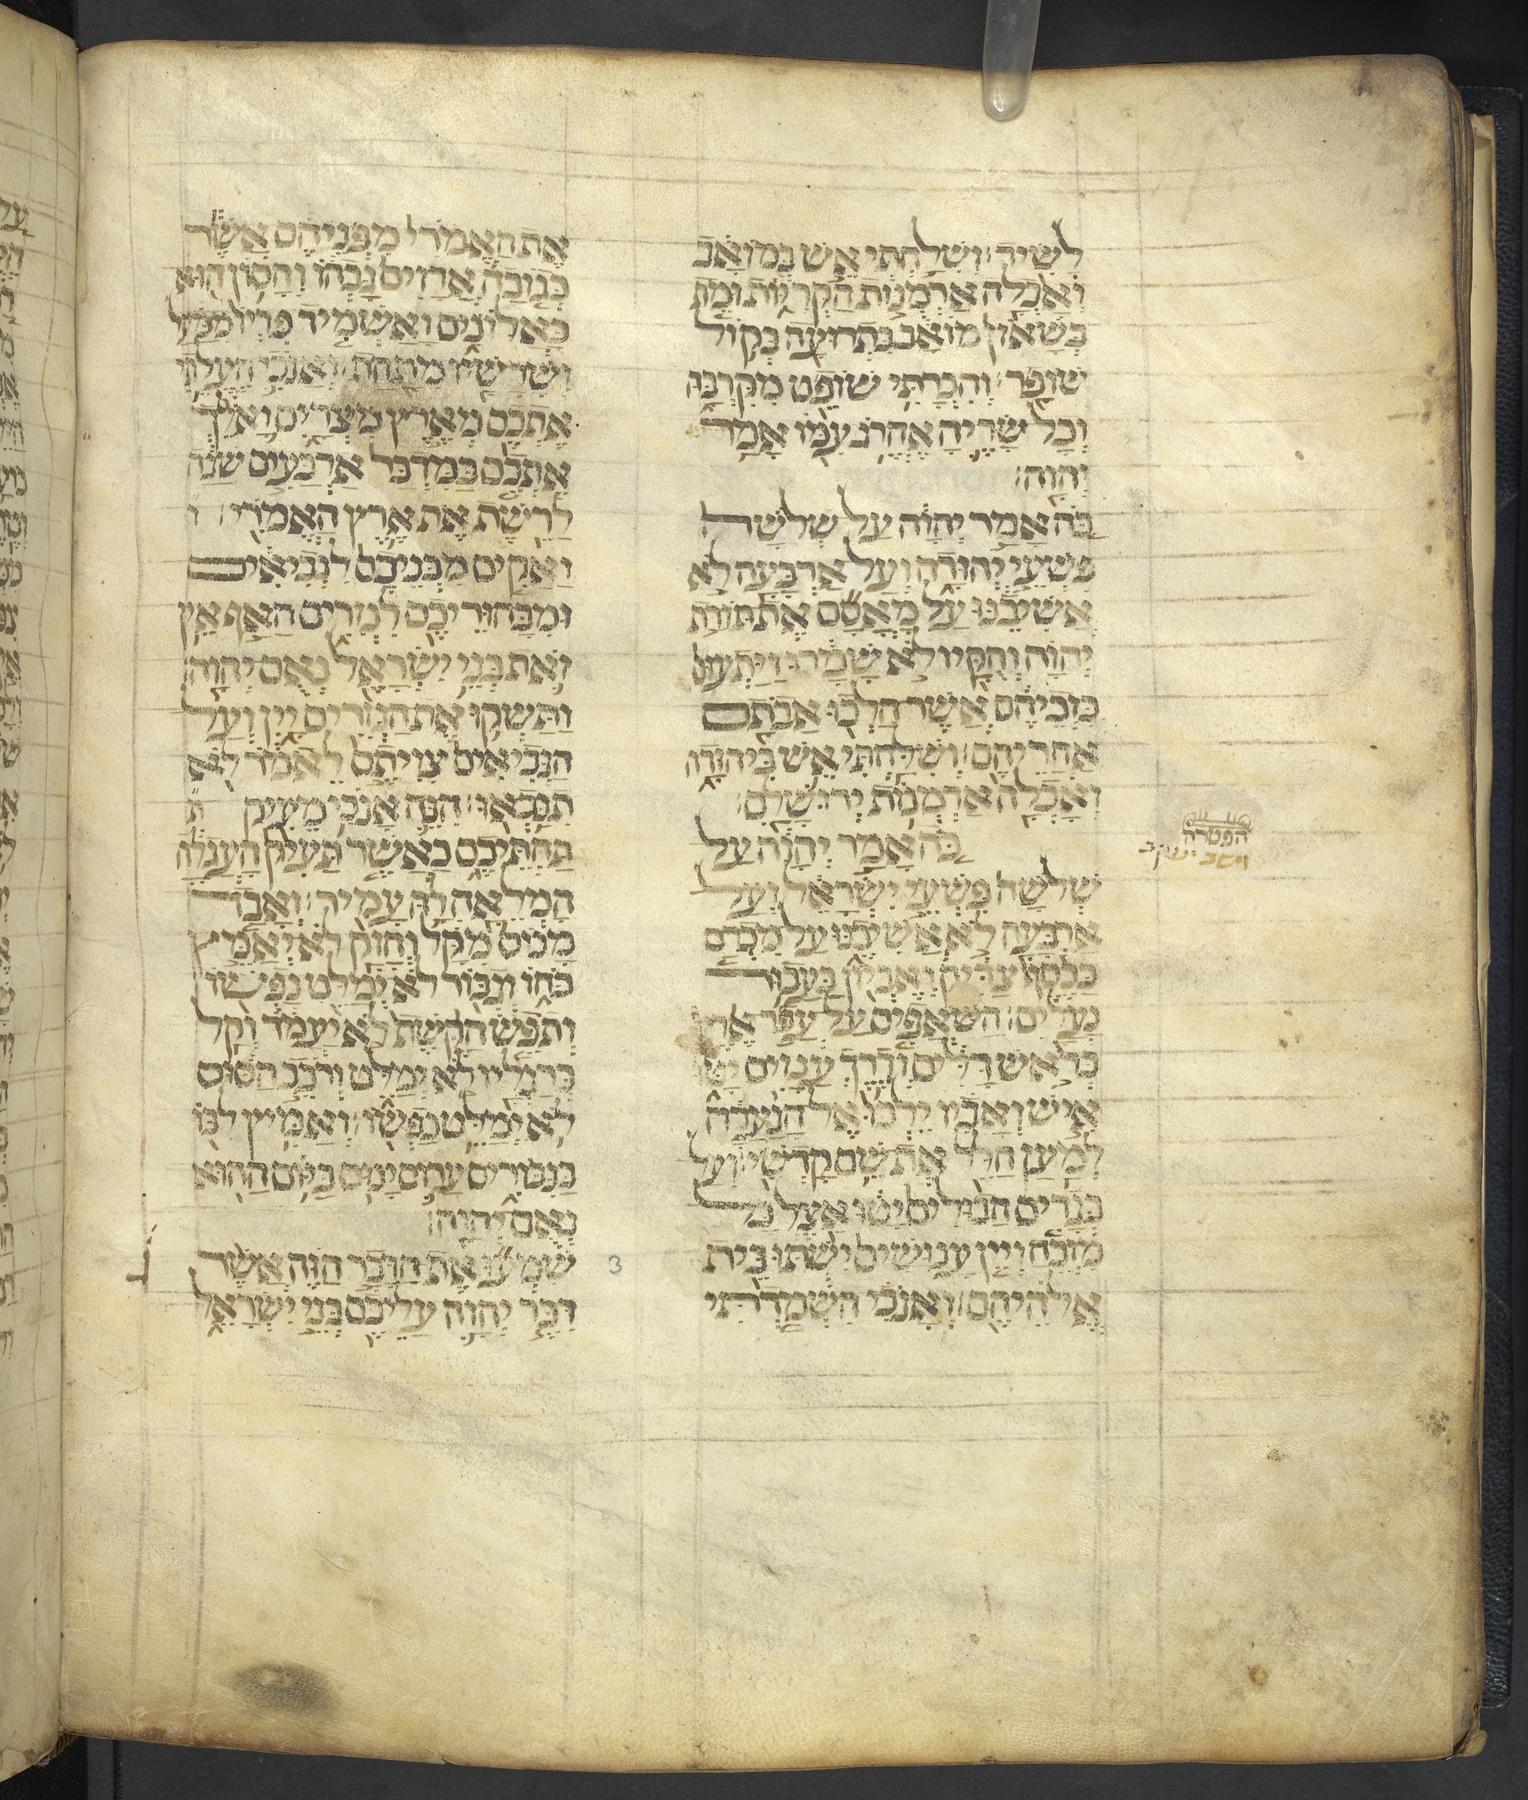 לשיד׃ ושלחתי אש במואב
ואכלה ארמנות הקריות ומת
בשאון מואב בתרועה בקול
שופר׃ והכרתי שופט מקרבה
וכל שריה אהרג עמו אמר
יהוה׃
כה אמר יהוה על שלשה
פשעי יהודה ועל ארבעה לא
אשיבנו על מאסם את תורת
יהוה וחקיו לא שמרו ויתעום
כזביהם אשר הלכו אבתם
אחריהם׃ ושלחתי אש ביהודה
ואכלה ארמנת ירושלם׃
כה אמר יהוה על
שלשה פשעי ישראל ועל
ארבעה לא אשיבנו על מכרם
בכסף צדיק ואביון בעבור
נעלים׃ השאפים על עפר ארץ
בראש דלים ודרך ענוים יטו
איש ואביו ילכו אל הנערה
למען חלל את שם קדשי׃ ועל
בגדים חבולים יטו אצל כל
מזבח ויין ענושים ישתו בית
אלהיהם׃ ואנכי השמדתי
את האמרי מפניהם אשר
כגובה ארזים גבהו וחסון הוא
כאלונים ואשמיד פריו ממעל
ושרשיו מתחת׃ ואנכי העליתי
אתכם מארץ מצרים ואולך
אתכם במדבר ארבעים שנה
לרשת את ארץ האמרי׃
ואקים מבניכם לנביאים
ומבחוריכם לנזרים האף אין
זאת בני ישראל נאם יהוה׃
ותשקו את הנזרים יין ועל
הנביאים צויתם לאמר לא
תנבאו׃ הנה אנכי מעיק ת
תחתיכם כאשר תעיק העגלה
המלאה לה עמיר׃ ואבד
מנוס מקל וחזק לא יאמיץ
כחו וגבור לא ימלט נפשו׃
ותפש הקשת לא יעמד וקל
ברגליו לא ימלט ורכב הסוס
לא ימלט נפשו׃ ואמיץ לבו
בגבורים ערום ינוס ביום ההוא
נאם יהוה׃
שמעו את הדבר הזה אשר
דבר יהוה עליכם בני ישראל
הפטרה
וישב יעקב
3